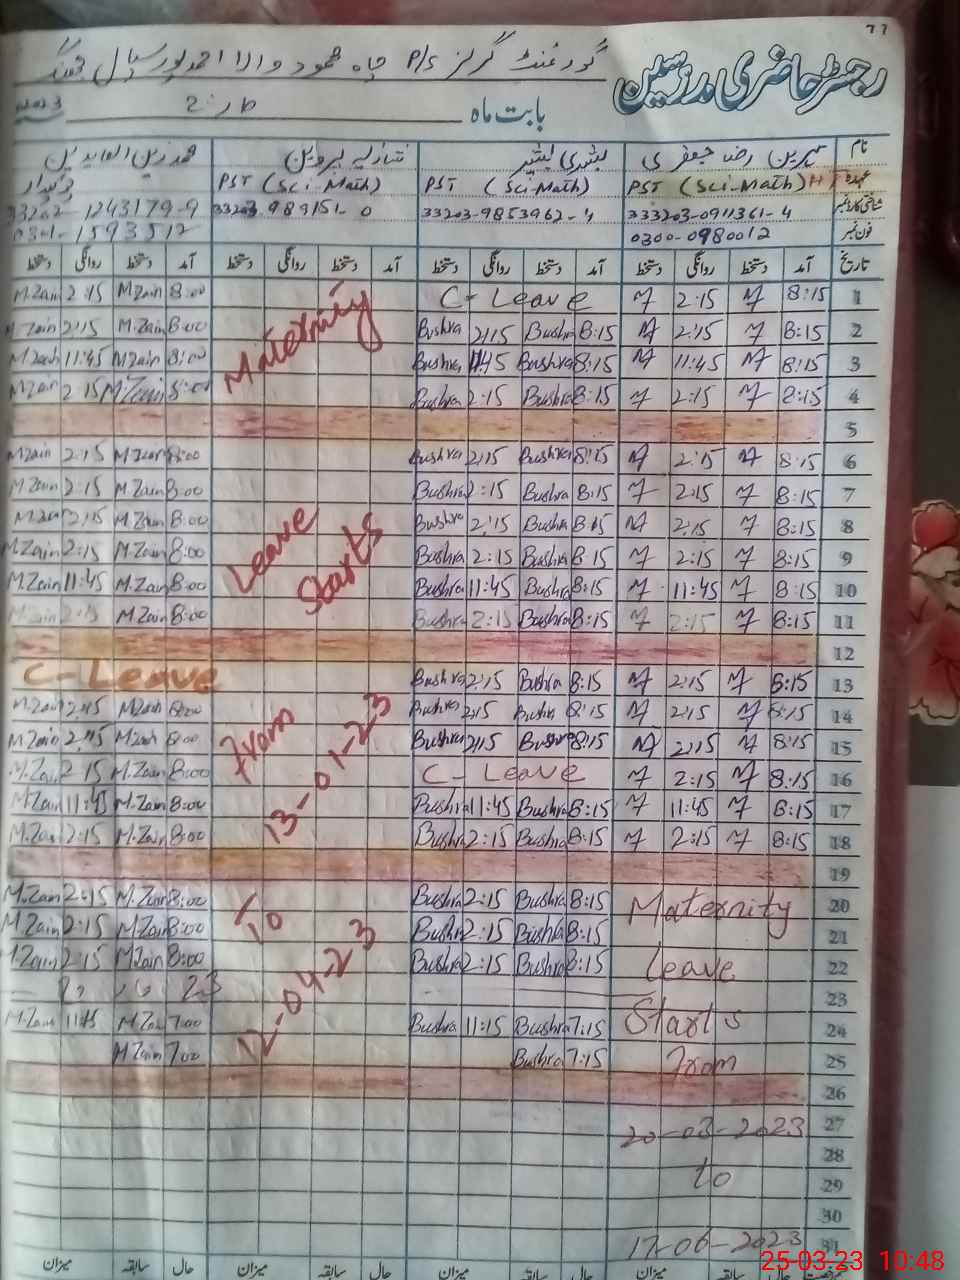 77
رجسٹر حاضری مدرسین
گورنمنٹ گرلز P/S چاہ محمود والا احمد پور سیال جھنگ
بابت ماہ مارچ 2023
نام مہرین رضا جعفری بشریٰ بشیر شازیہ پروین محمد زین العابدین
عہدہ PST (Sci-Math) HT PST (Sci-Math) PST (Sci-Math) چوکیدار
شناختی کارڈ نمبر 333203-0911361-4 33203-9853962-4 33203-989151-0 33202-1243179-9
فون نمبر 0300-0980012 0301-1593512
تاریخ آمد دستخط روانگی دستخط آمد دستخط روانگی دستخط آمد دستخط روانگی دستخط آمد دستخط روانگی دستخط
1 8:15 M 2:15 M C-Leave Maternity 8:00 M.Zain 2:15 M.Zain
2 8:15 M 2:15 M 8:15 Bushra 2:15 Bushra 8:00 M.Zain 2:15 M.Zain
3 8:15 M 11:45 M 8:15 Bushra 11:45 Bushra 8:00 M.Zain 11:45 M.Zain
4 8:15 M 2:15 M 8:15 Bushra 2:15 Bushra 8:00 M.Zain 2:15 M.Zain
5
6 8:15 M 2:15 M 8:15 Bushra 2:15 Bushra 8:00 M.Zain 2:15 M.Zain
7 8:15 M 2:15 M 8:15 Bushra 2:15 Bushra 8:00 M.Zain 2:15 M.Zain
8 8:15 M 2:15 M 8:15 Bushra 2:15 Bushra Leave 8:00 M.Zain 2:15 M.Zain
9 8:15 M 2:15 M 8:15 Bushra 2:15 Bushra Starts 8:00 M.Zain 2:15 M.Zain
10 8:15 M 11:45 M 8:15 Bushra 11:45 Bushra 8:00 M.Zain 11:45 M.Zain
11 8:15 M 2:15 M 8:15 Bushra 2:15 Bushra 8:00 M.Zain 2:15 M.Zain
12
13 8:15 M 2:15 M 8:15 Bushra 2:15 Bushra C-Leave
14 8:15 M 2:15 M 8:15 Bushra 2:15 Bushra From 8:00 M.Zain 2:15 M.Zain
15 8:15 M 2:15 M 8:15 Bushra 2:15 Bushra 13-01-23 8:00 M.Zain 2:15 M.Zain
16 8:15 M 2:15 M C-Leave 8:00 M.Zain 2:15 M.Zain
17 8:15 M 11:45 M 8:15 Bushra 11:45 Bushra 8:00 M.Zain 11:45 M.Zain
18 8:15 M 2:15 M 8:15 Bushra 2:15 Bushra 8:00 M.Zain 2:15 M.Zain
19
20 Maternity 8:15 Bushra 2:15 Bushra To 8:00 M.Zain 2:15 M.Zain
21 8:15 Bushra 2:15 Bushra 8:00 M.Zain 2:15 M.Zain
22 Leave 8:15 Bushra 2:15 Bushra 12-04-23 8:00 M.Zain 2:15 M.Zain
23 23
24 Starts 7:15 Bushra 11:15 Bushra 7:00 M.Zain 11:15 M.Zain
25 From 7:15 Bushra 7:00 M.Zain
26
27 20-03-2023
28
29 to
30
31 17-06-2023
حال سابقہ میزان حال سابقہ میزان حال سابقہ میزان حال سابقہ میزان
25-03-23 10:48